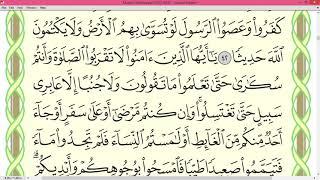 كَفَرُوا۟ وَعَصَوُا۟ ٱلرَّسُولَ لَوْ تُسَوَّىٰ بِهِمُ ٱلْأَرْضُ وَلَا يَكْتُمُونَ
ٱللَّهَ حَدِيثًا ٤٢ يَـٰٓأَيُّهَا ٱلَّذِينَ ءَامَنُوا۟ لَا تَقْرَبُوا۟ ٱلصَّلَوٰةَ وَأَنتُمْ
سُكَـٰرَىٰ حَتَّىٰ تَعْلَمُوا۟ مَا تَقُولُونَ وَلَا جُنُبًا إِلَّا عَابِرِى
سَبِيلٍ حَتَّىٰ تَغْتَسِلُوا۟ ۚ وَإِن كُنتُم مَّرْضَىٰٓ أَوْ عَلَىٰ سَفَرٍ أَوْ جَآءَ
أَحَدٌ مِّنكُم مِّنَ ٱلْغَآئِطِ أَوْ لَـٰمَسْتُمُ ٱلنِّسَآءَ فَلَمْ تَجِدُوا۟ مَآءً
فَتَيَمَّمُوا۟ صَعِيدًا طَيِّبًا فَٱمْسَحُوا۟ بِوُجُوهِكُمْ وَأَيْدِيكُمْ ۗ